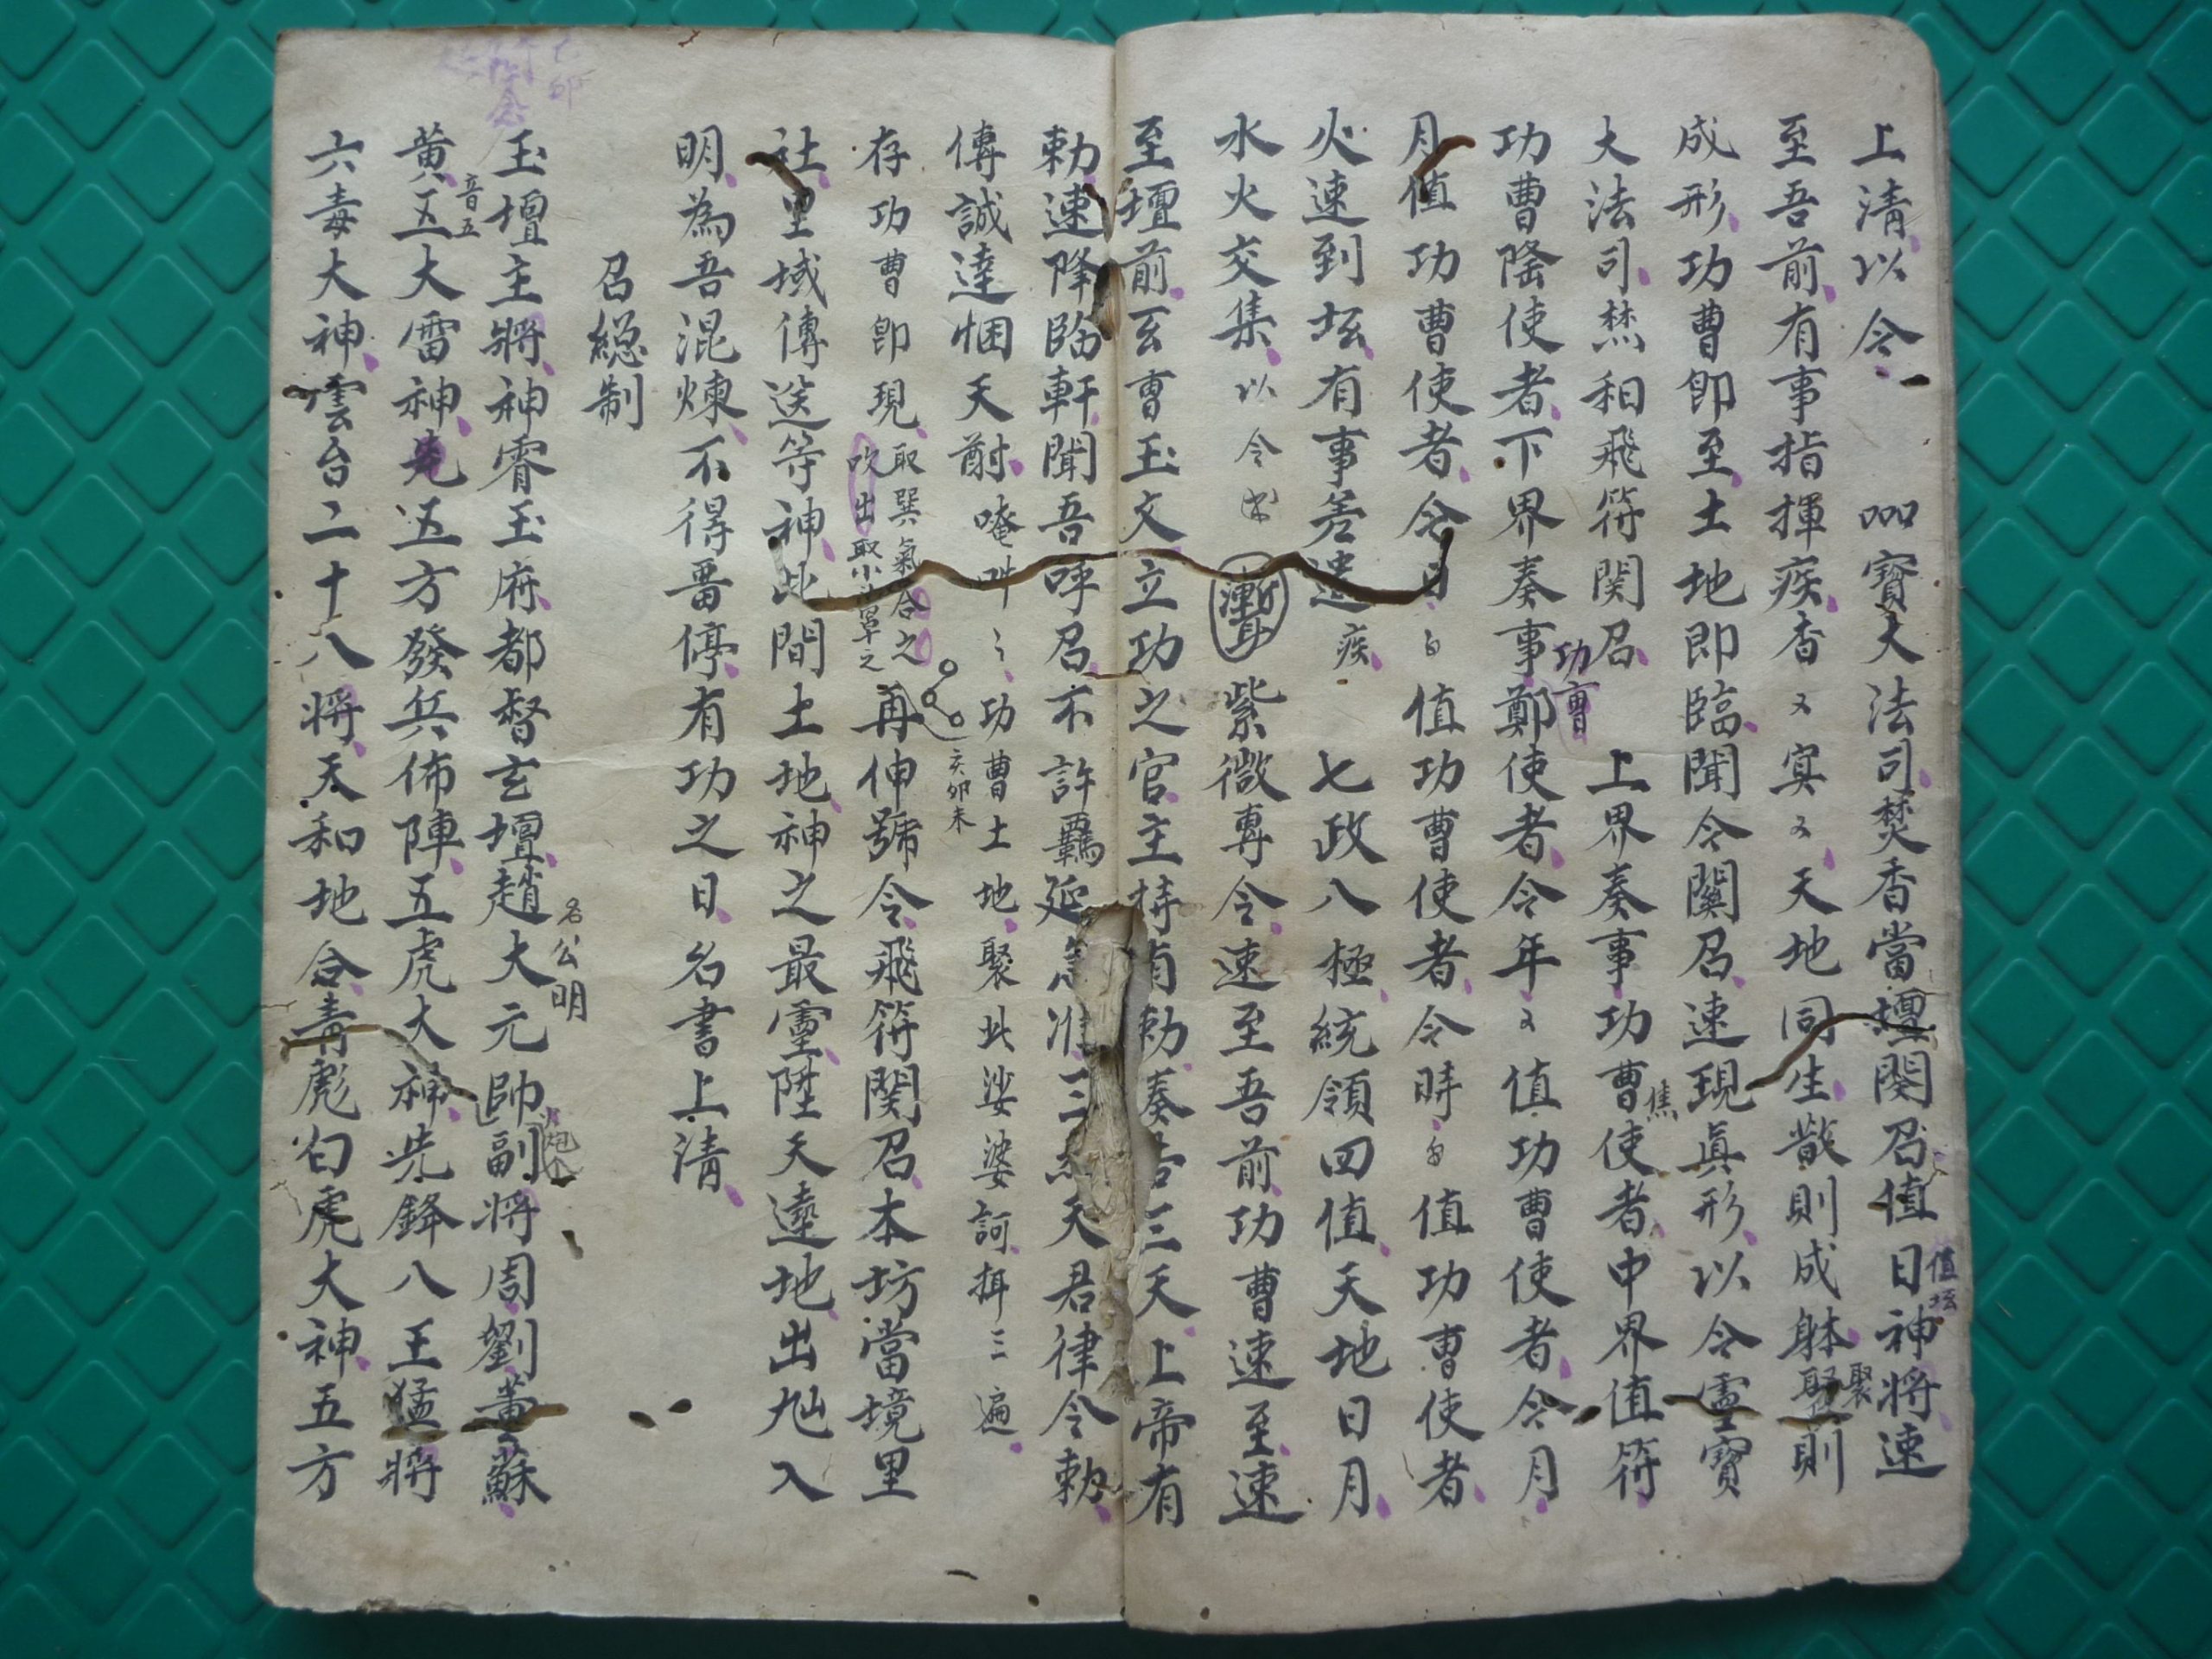 上清以令 寶大法司焚香當壇関召值日神將速
值坛
至吾前有事指揮疾香又冥又天地同生散則成躰聚則
聚
成形功曹即至土地即臨聞令関召速現眞形以令靈寶
大法司焚和飛符関召 上界奏事功曹使者中界值符
功曹
焦
功曹隂使者下界奏事鄭使者令年又值功曹使者令月
月值功曹使者令日々值功曹使者令時々值功曹使者
火速到坛有事差遣疾 七政八極統領四值天地日月
水火交集以令 紫微專令速至吾前功曹速至速
至壇前玄曹玉文立功之官主持有勅奏告三天上帝有
勅速降臨軒聞吾呼召不許羈延 准三 天君律令勅
傳誠達悃天酧唵吽々功曹土地聚此娑婆訶揖三遍
存功曹即現取巽氣合之吹出聚 罩之再伸號令飛符関召本坊當境里
亥卯未
社里域傳送等神此間土地神之最靈陞天達地出処入
明為吾混煉不得畱停有功之日名書上清
召総制
玉壇主將神霄玉府都督玄壇趙大元帥副将周劉黄蘇
名公明
黄五大雷神 五方發兵佈陣五虎大神先鋒八王猛將
音五
六毒大神雲台二十八将天和地合青彪白虎大神五方
己卯